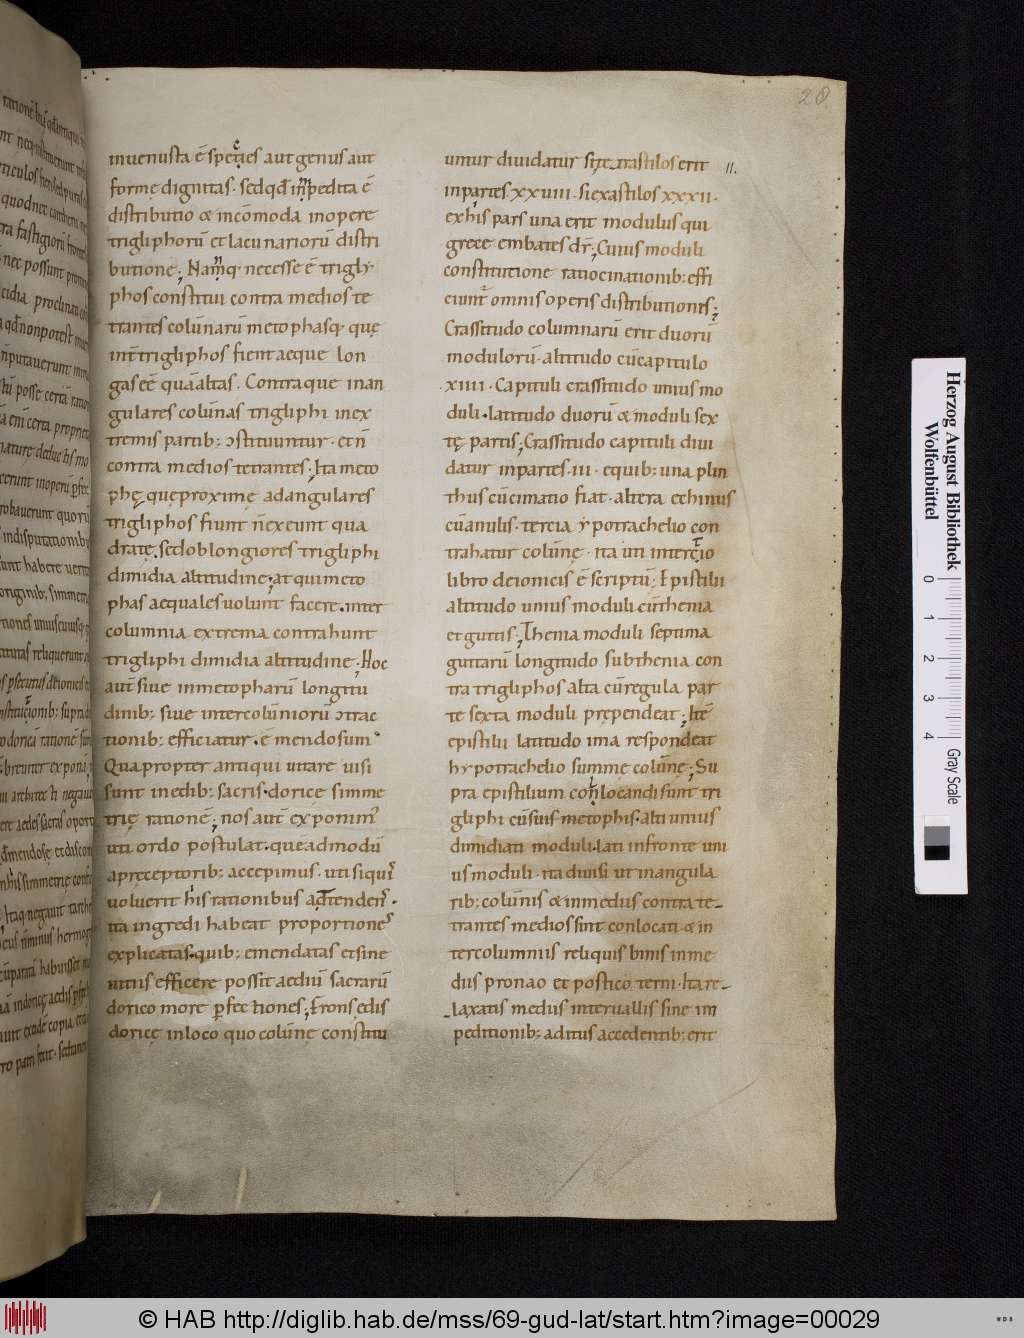 20
inuenusta ē species aut genus aut
formę dignitas. sed qđ inpedita ē
distributio & incōmoda in opere
trigliphorū et lacunariorū distri
butione; Namq; necesse ē trigli
phos constitui contra medios te
trantes colūnarū metophasq; quę
int̄ trigliphos fient aeque lon
gas eē quā altas. Contraque in an
gulares colūnas trigliphi in ex
tremis partib; ɔstituuntur. et n̄
contra medios tetrantes; Ita meto
phę quę proximę ad angulares
trigliphos fiunt n̄ exeunt qua
dratę. sed oblongiores trigliphi
dimidia altitudine; at qui meto
phas aequales uolunt facere. inter
columnia extrema contrahunt
trigliphi dimidia altitudine; Hoc
aut̄ siue in metopharū longitu
dinib; siue intercolūniorū ɔtrac
tionib; efficiatur. ē mendosum
Quapropter antiqui uitare uisi
sunt in edib; sacris. doricę simme
trię rationē; nos aut̄ exponim'
uti ordo postulat. queadmodū
a pręceptorib; accepimus. uti siquis
uoluerit his rationibus adtendens.
ita ingredi habeat proportiones
explicatas. quib; emendatas et sine
uitiis efficere possit aediū sacrarū
dorico more perfectiones; Frons edis
doricę in loco quo colūnę constitu
untur diuidatur si tetrastilos erit
II.
in partes xxuiii. si exastilos xxxii.
ex his pars una erit modulus qui
grece embates dr̄; Cuius moduli
constitutione ratiocinationib; effi
ciunt̄ omnis operis distributionis;
Crassitudo columnarū erit duorū
modulorū. altitudo cū capitulo
.xiiii. Capituli crassitudo unius mo
duli. latitudo duorū & moduli sex
tę partis; Crassitudo capituli diui
datur in partes .iii. e quib; una plin
thus cū cimatio fiat. altera echinus
cū anulis. tercia ypotrachelio con
trahatur colūnę. ita uti in tercio
libro de ionicis ē scriptū; Epistilii
altitudo unius moduli cū thenia
et guttis; Thenia moduli septima
guttarū longitudo sub thenia con
tra trigliphos alta cū regula par
te sexta moduli prępendeat; Itē
epistilii latitudo ima respondeat
hypotrachelio summę colūnę; Su
pra epistilium conlocandi sunt tri
gliphi cū suis metophis. alti unius
dimidiati moduli. lati in fronte uni
us moduli. ita diuisi ut in angula
rib; colūnis & in mediis contra te
trantes medios sint conlocati. & in
tercolumniis reliquis binis in me
diis pronao et postico terni. Ita re
laxatis mediis interuallis sine im
peditionib; aditus accedentib; erit
Herzog August Bibliothek
Wolfenbüttel
0 1 2 3 4
Gray Scale
© HAB http://diglib.hab.de/mss/69-gud-lat/start.htm?image=00029